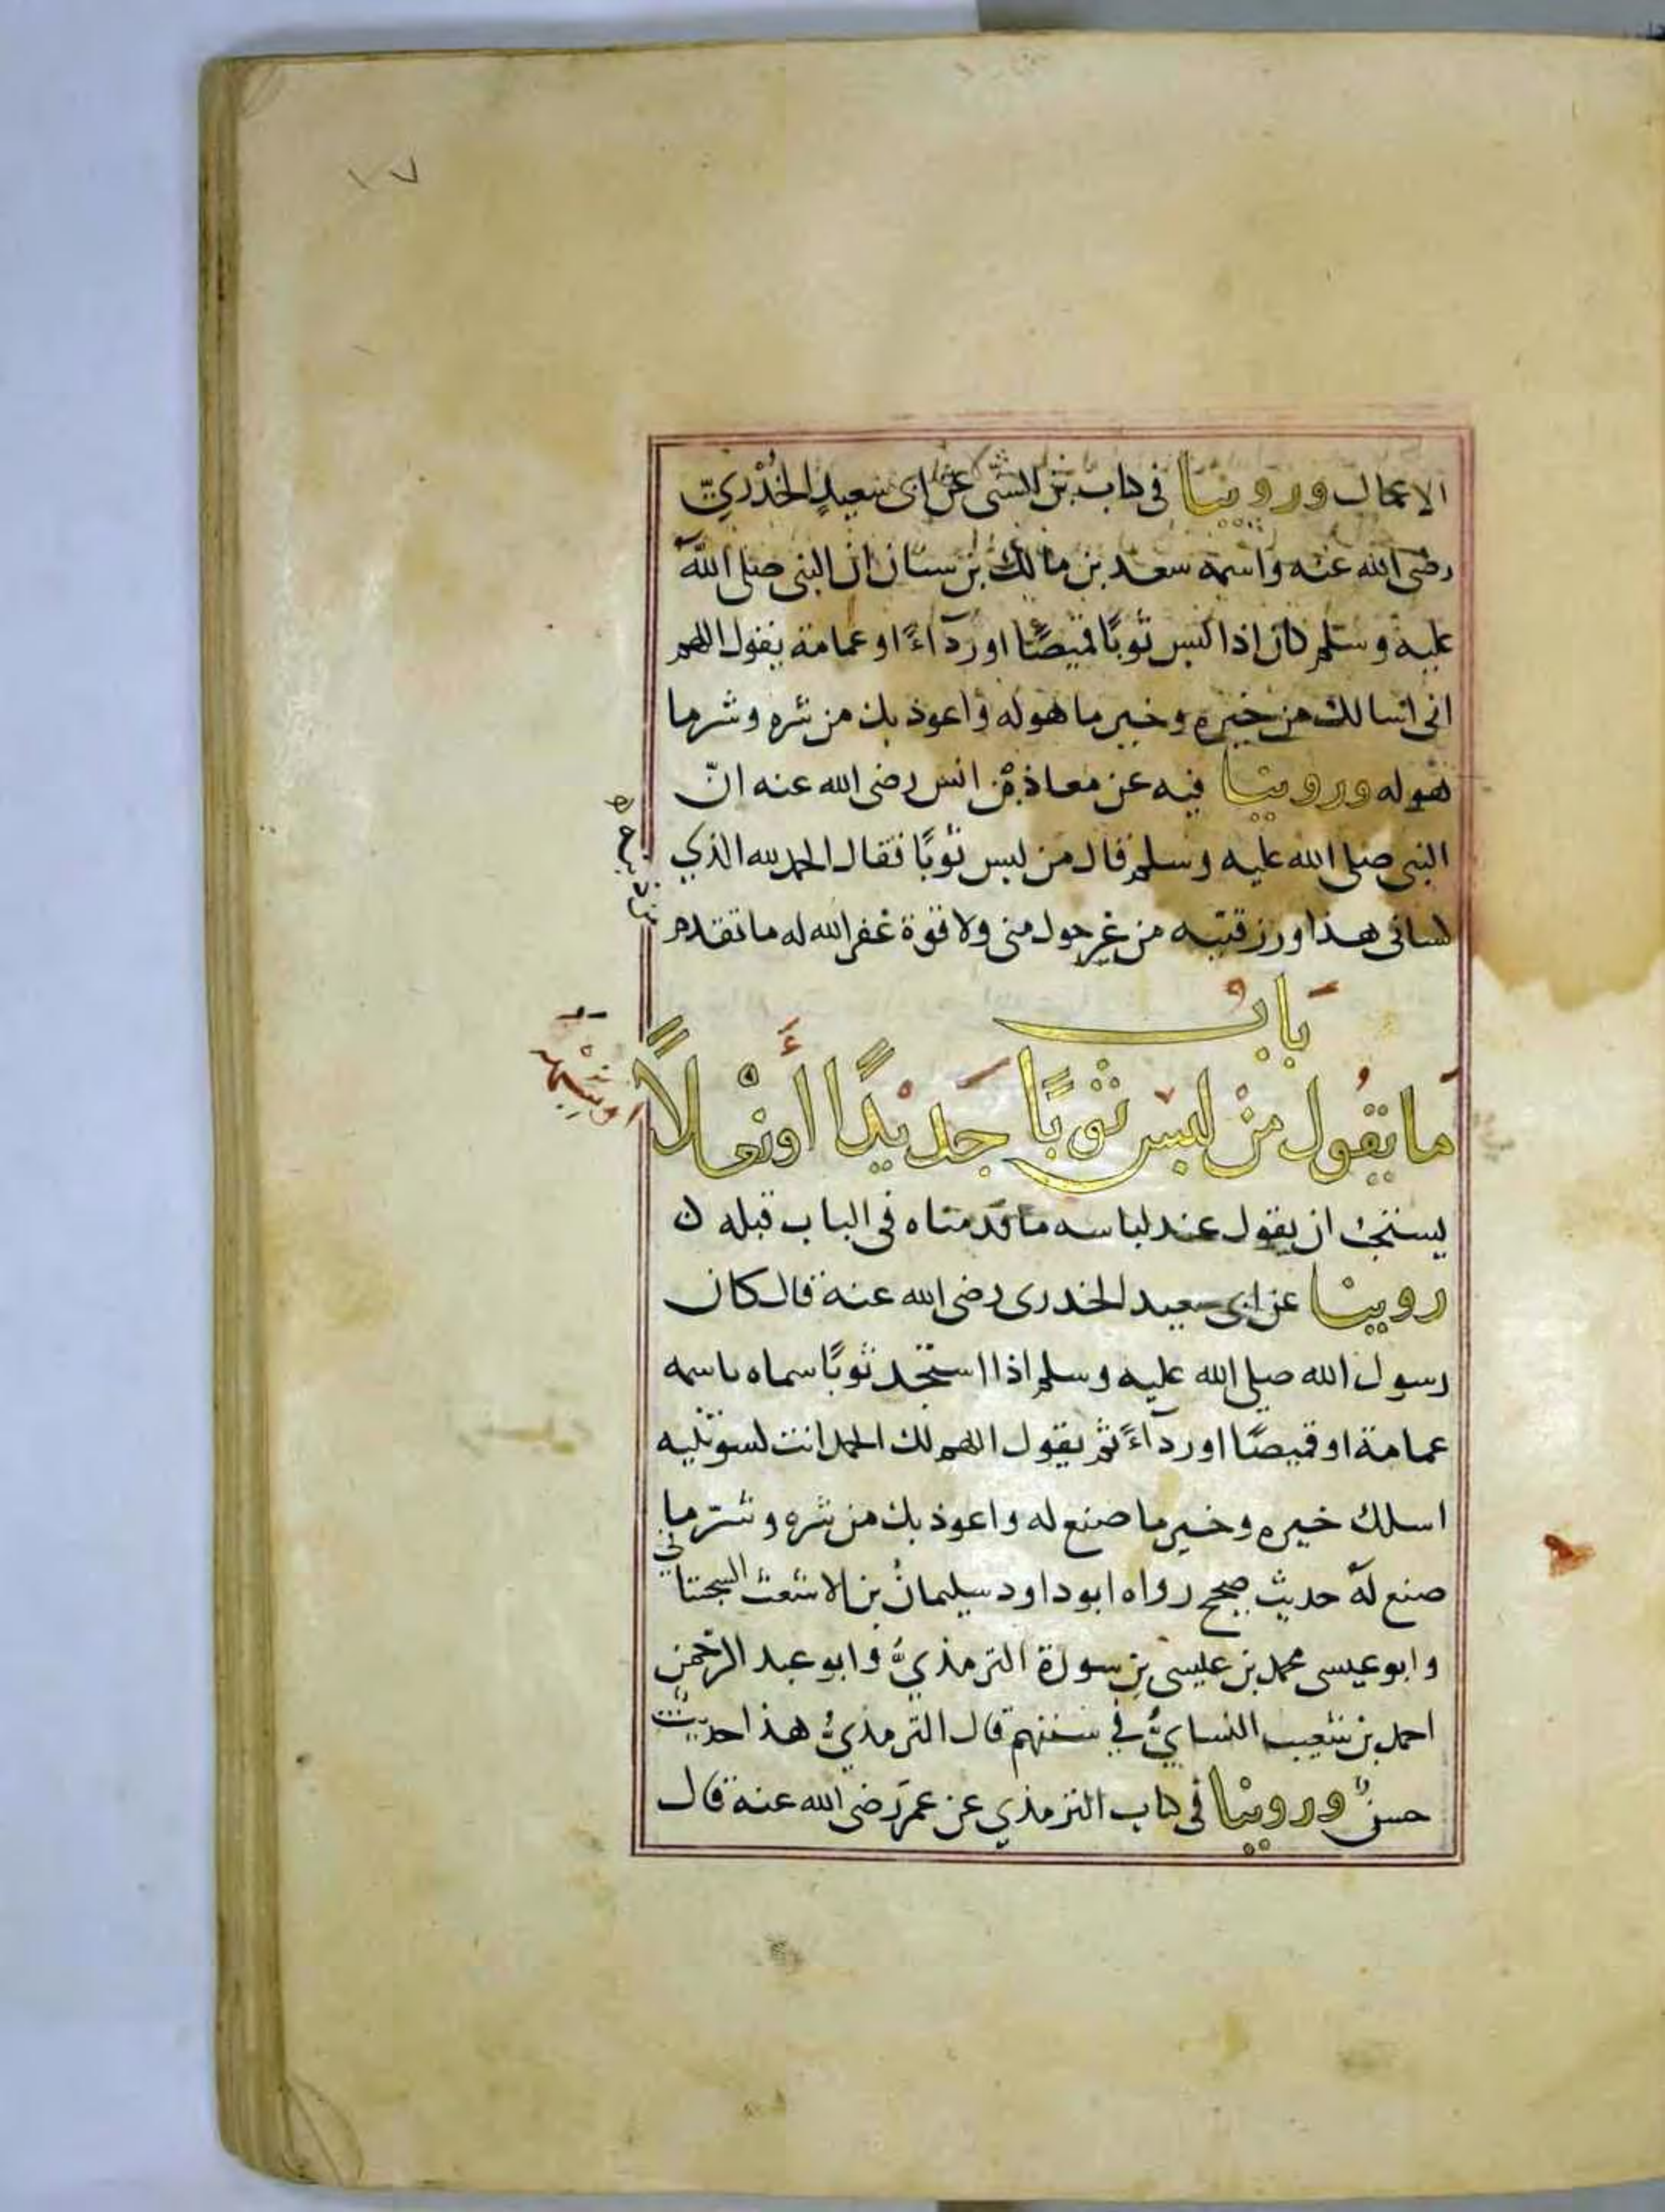 ١٧
الاعمال وروينا في كتاب بن السنى عن ابى سعيدٍ الخُدْرِيّ
رضى الله عنه واسمه سعد بن مالك بن سنان ان النبى صلى الله
عليه وسلم كان اذا لبس ثوبًا قميصًا او ردآءً او عمامة يقول اللهم
انى اسالك من خيره وخير ما هوله واعوذ بك من شره وشر ما
هوله وروينا فيه عن معاذ بن انس رضى الله عنه انّ
النبى صلى الله عليه وسلم قال من لبس ثوبًا فقال الحمد لله الذي
كسانى هذا ورزقنيه من غير حول منى ولا قوة غفر الله له ما تقدم
من ذنبه
بَابُ
مَا يَقُول مَنْ لبس ثوبًا جَدِيْدًا أَو نَعْلاً
اوشبهه
يستحب ان يقول عند لباسه ما قدمناه فى الباب قبله ن
روينا عن ابى سعيد الخدرى رضى الله عنه قال كان
رسول الله صلى الله عليه وسلم اذا استجد ثوبًا سماه باسمه
عمامة او قميصًا او ردآءً ثم يقول اللهم لك الحمد انت كسوتنيه
اسلك خيره وخير ما صنع له واعوذ بك من شره وشرّ ما
صنع لهُ حديث صحيح رواه ابو داود سليمانُ بن الاشعث السجستاني
وابو عيسى محمد بن عيسى بن سورة الترمذيُّ وابو عبد الرحمن
احمد بن شعيب النسايُّ في سننهم قال الترمذيُّ هذا حديث
حسنٌ وروينا فى كتاب الترمذي عن عمرَ رضى الله عنه قال